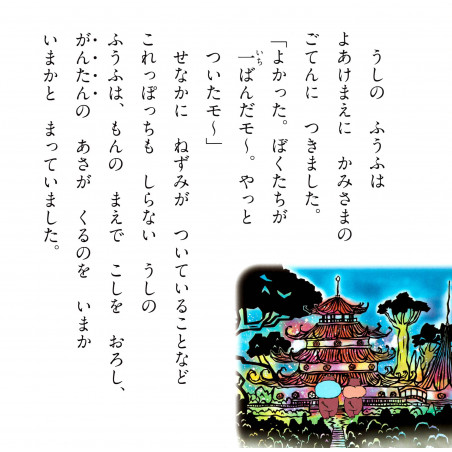 うしの　ふうふは
よあけまえに　かみさまの
ごてんに　つきました。
「よかった。ぼくたちが
一ばんだモ〜。やっと
ついたモ〜」
せなかに　ねずみが　ついていることなど
これっぽっちも　しらない　うしの
ふうふは、もんの　まえで　こしを　おろし、
がんたんの　あさが　くるのを　いまか
いまかと　まっていました。